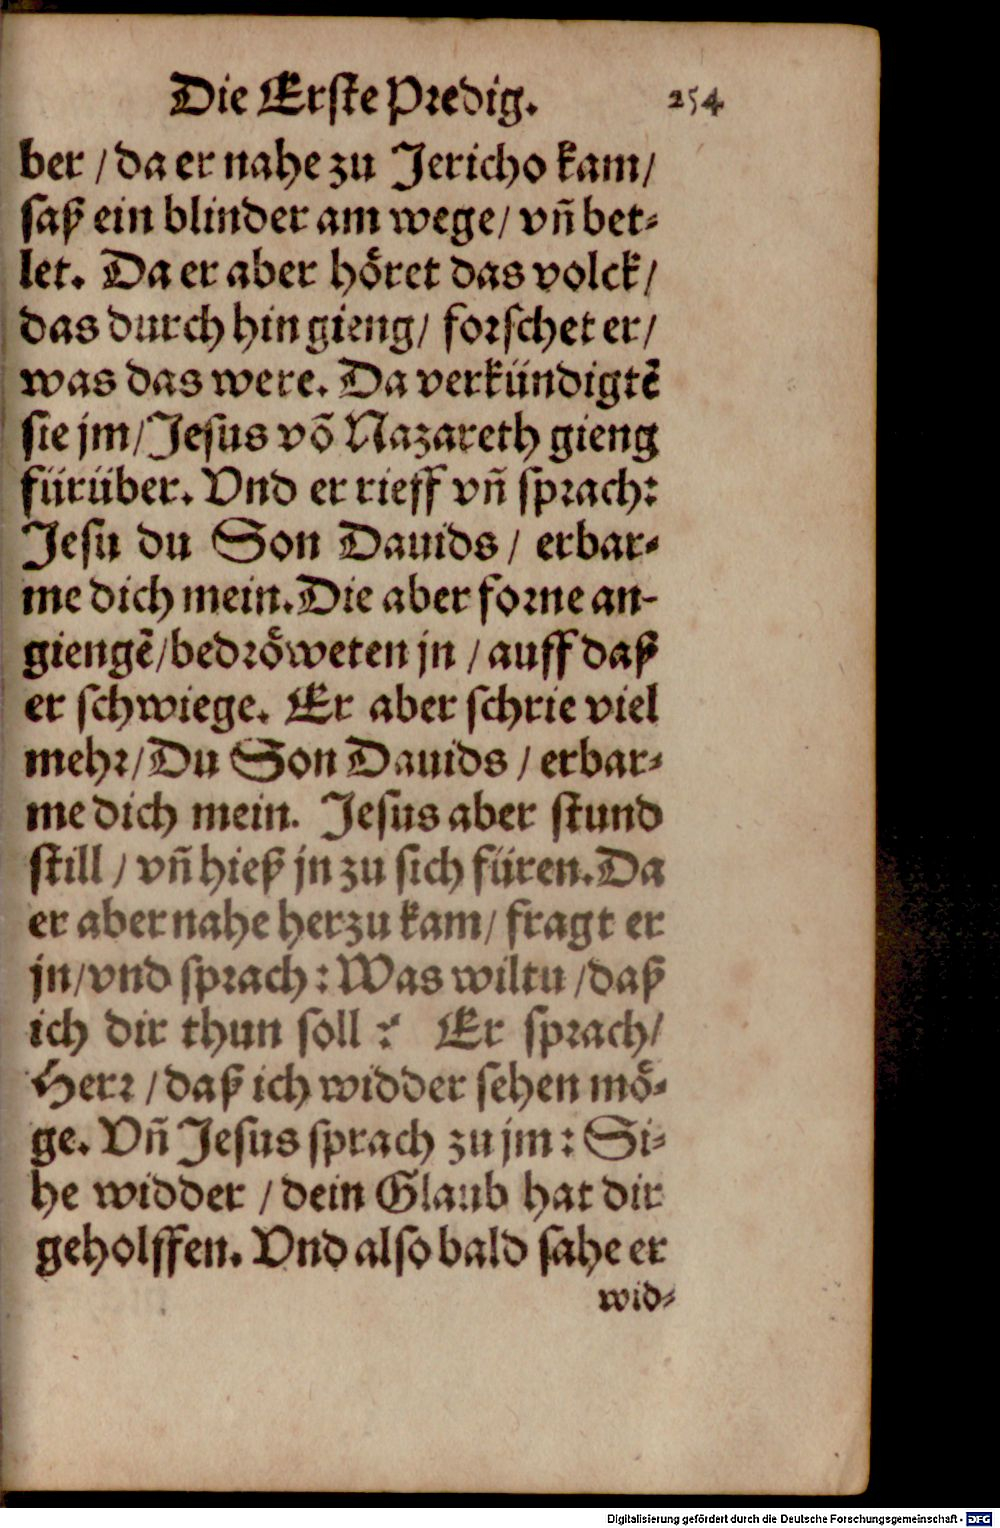 Die Erste Predig. 254
ber / da er nahe zu Jericho kam /
saß ein blinder am wege / vñ bet-
let. Da er aber hoͤret das volck /
das durch hin gieng / forschet er /
was das were. Da verkündigtẽ
sie jm / Jesus võ Nazareth gieng
fürüber. Vnd er rieff vñ sprach:
Jesu du Son Dauids / erbar-
me dich mein. Die aber forne an-
giengẽ / bedroͤweten jn / auff daß
er schwiege. Er aber schrie viel
mehr / Du Son Dauids / erbar-
me dich mein. Jesus aber stund
still / vñ hieß jn zu sich füren. Da
er aber nahe herzu kam / fragt er
jn / vnd sprach: Was wiltu / daß
ich dir thun soll? Er sprach /
Herr / daß ich widder sehen moͤ-
ge. Vñ Jesus sprach zu jm: Si-
he widder / dein Glaub hat dir
geholffen. Vnd also bald sahe er
wid-
Digitalisierung gefördert durch die Deutsche Forschungsgemeinschaft - DFG